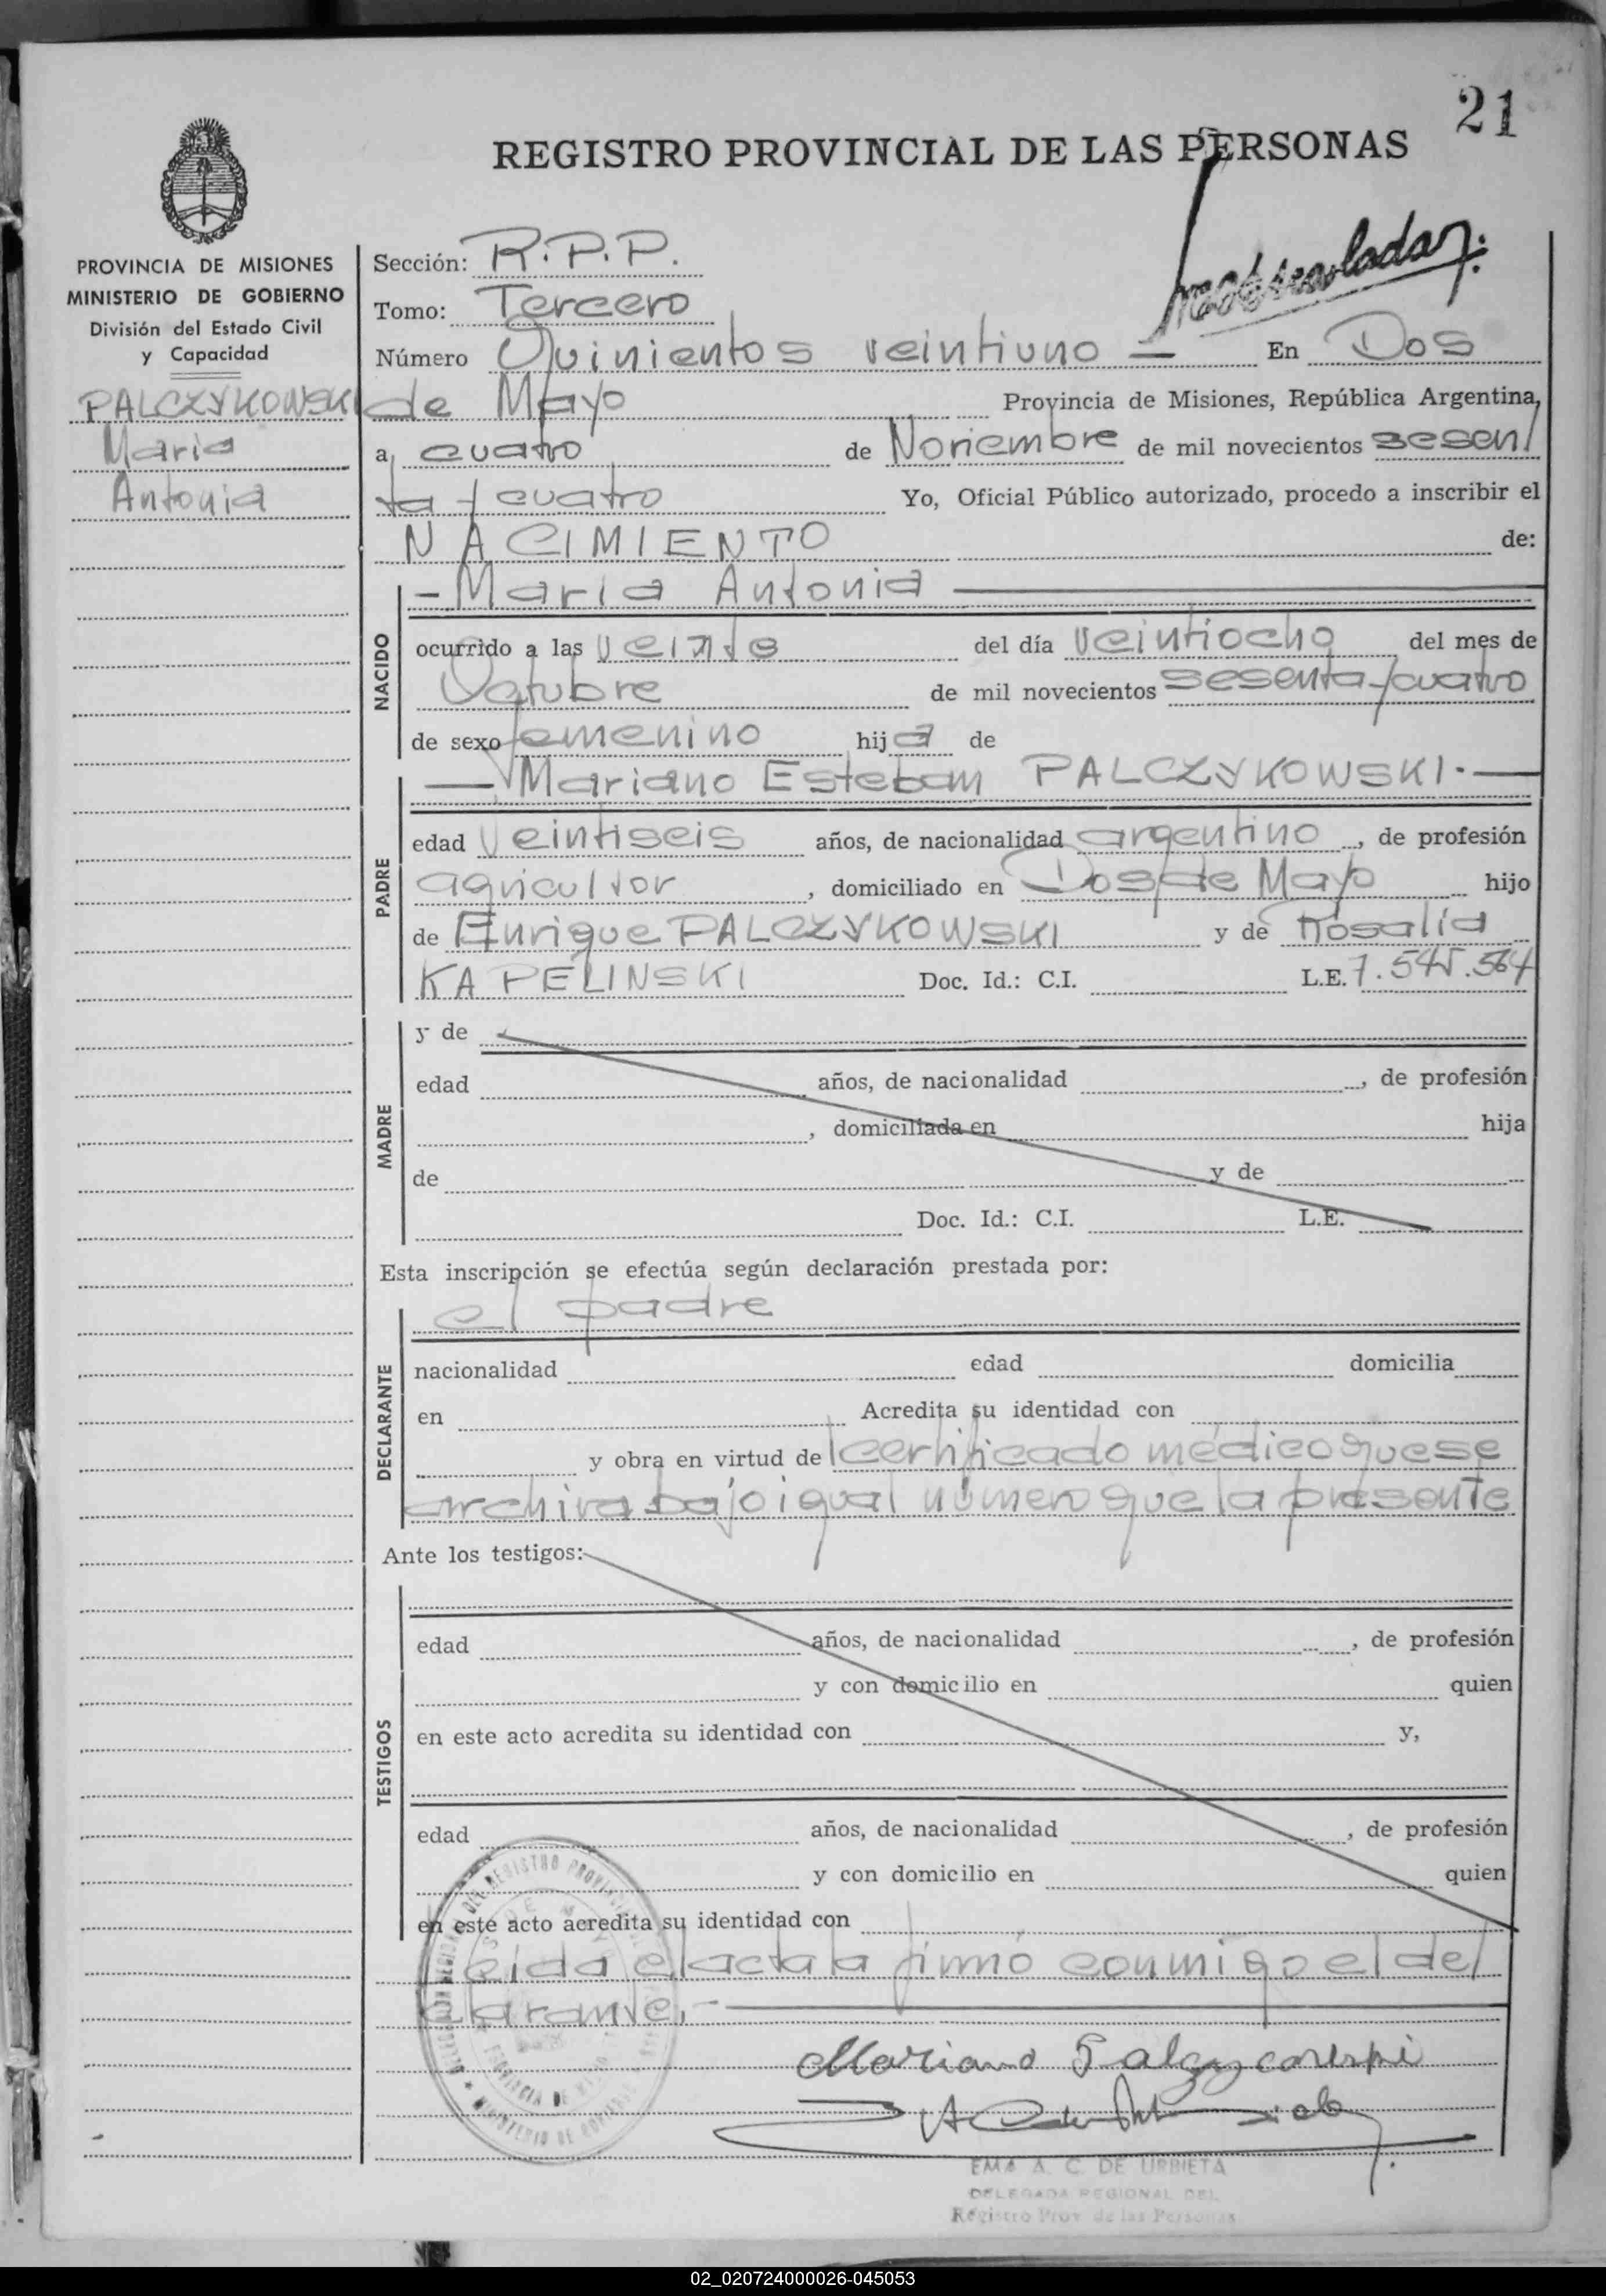 21
REGISTRO PROVINCIAL DE LAS PERSONAS
PROVINCIA DE MISIONES
MINISTERIO DE GOBIERNO
División del Estado Civil
y Capacidad
PALCZYKOWSKI
Maria
Antonia
Sección: R.P.P.
Tomo: Tercero
Número Quinientos veintiuno — En Dos
de Mayo Provincia de Misiones, República Argentina,
a cuatro de Noviembre de mil novecientos sesen/
ta y cuatro Yo, Oficial Público autorizado, procedo a inscribir el
NACIMIENTO de:
NACIDO
- Maria Antonia
ocurrido a las veinte del día veintiocho del mes de
Octubre de mil novecientos sesenta y cuatro
de sexo femenino hija de
PADRE
— Mariano Esteban PALCZYKOWSKI.
edad veintiseis años, de nacionalidad argentino, de profesión
agricultor, domiciliado en Dos de Mayo hijo
de Enrique PALCZYKOWSKI y de Rosalia
KAPELINSKI Doc. Id.: C.I. L.E. 7.545.564
MADRE
y de
edad años, de nacionalidad , de profesión
, domiciliada en hija
de y de
Doc. Id.: C.I. L.E.
Esta inscripción se efectúa según declaración prestada por:
DECLARANTE
el padre
nacionalidad edad domicilia
en Acredita su identidad con
y obra en virtud del certificado médico que se
archiva bajo igual número que la presente
Ante los testigos:
TESTIGOS
edad años, de nacionalidad , de profesión
y con domicilio en quien
en este acto acredita su identidad con y,
edad años, de nacionalidad , de profesión
y con domicilio en quien
en este acto acredita su identidad con
Leida el acta la firmó conmigo el de/
clarante.-
Mariano
EMA A. C. DE URBIETA
DELEGADA REGIONAL DEL
Registro Prov de las Personas
02_020724000026-045053